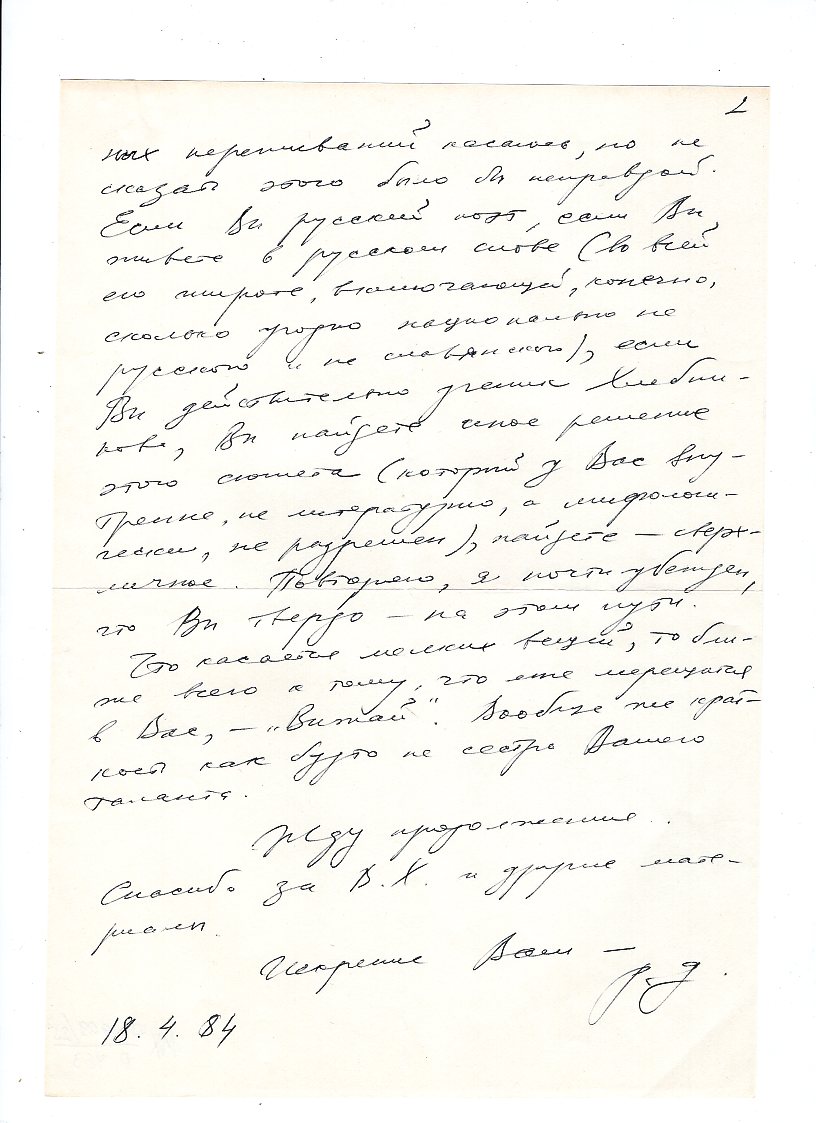 2
ных переживаний касаюсь, но не
сказать этого было бы неправдой.
Если Вы русский поэт, если Вы
живете в русском слове (во всей
его широте, включающей, конечно,
сколько угодно национально не
русского и не славянского), если
Вы действительно ученик Хлебни-
кова, Вы найдете иное решение
этого сюжета (который у Вас вну-
тренне, не литературно, а мифологи-
чески, не разрешен), найдете — сверх-
личное. Повторяю, я почти убежден,
что Вы твердо — на этом пути.
Что касается мелких вещей, то бли-
же всего к тому, что мне мерещится
в Вас, — „Витай“. Вообще же крат-
кость как будто не сестра Вашего
таланта.
Жду продолжения.
Спасибо за В.Х. и другие мате-
риалы.
Искренне Ваш —
Р.Д.
18.4.84